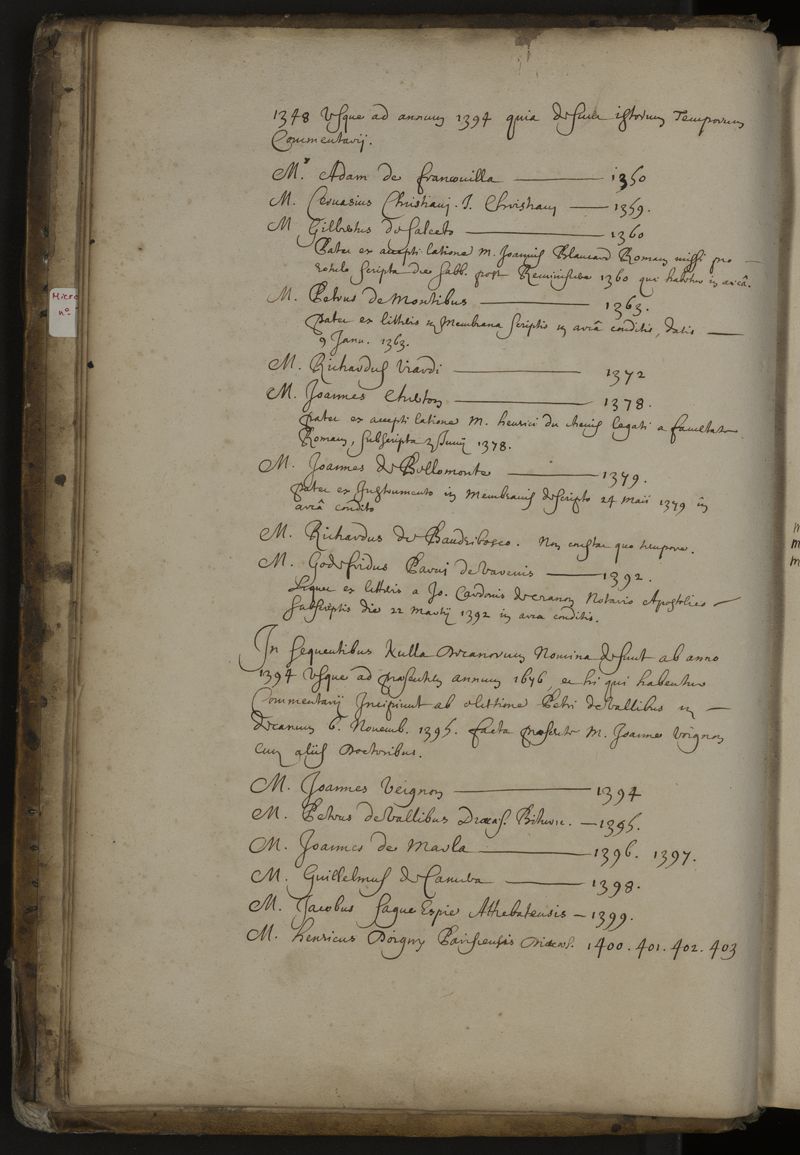 1348 Usque ad annum 1394 quia desunt istorum Temporum
Commentarij.
M.r Adam de francouilla — 1350
M. Geruasius Christianj. J. Christianj — 1359.
M Gilbertus de Salceto — 1360
Patet ex accepti latione M. Joannis Blancard Romam missi pro —
rotulo scripta die sabb. post Reminiscere 1360 qui habetur in arcâ.
M. Petrus de Montibus — 1363.
patet ex litteris in Membrana scriptis in arcâ conditis, datis —
9 Janu. 1363.
M. Richardus Viardi — 1372
M. Joannes — 1378.
patet ex accepti latione M. henrici du legati a facultate
Romam, subscripta Junij 1378.
M. Joannes de Bellomonte — 1379.
patet ex Instrumento in Membranis descripto 24 Maii 1379 in
arcâ condito
M. Richardus de Baudribosco. Non constat quo tempore.
M. Godefridus Parui de — 1392.
Liquet ex litteris a Jo. Cardonis de Notario Apostolico —
subscriptis die 22 Martij 1392 in arca conditis.
In sequentibus Nulla Decanorum Nomina desunt ab anno
1394 Usque ad præsentem annum 1676 et hi qui habentur
Commentarij Incipiunt ab electione Petri de Vallibus in —
decanum 6. Nouemb. 1395. facta præsente M. Joannes Voignon
cum aliis Doctoribus.
M. Joannes Voignon — 1394
M. Petrus de Vallibus Bituric. — 1395.
M. Joannes de Marla — 1396. 1397.
M. Guillelmus de Camera — 1398.
M. Jacobus Saque Espée Athebatensis — 1399.
M. henricus Doigny Parisiensis 1400. 401. 402. 403
Micro
nº